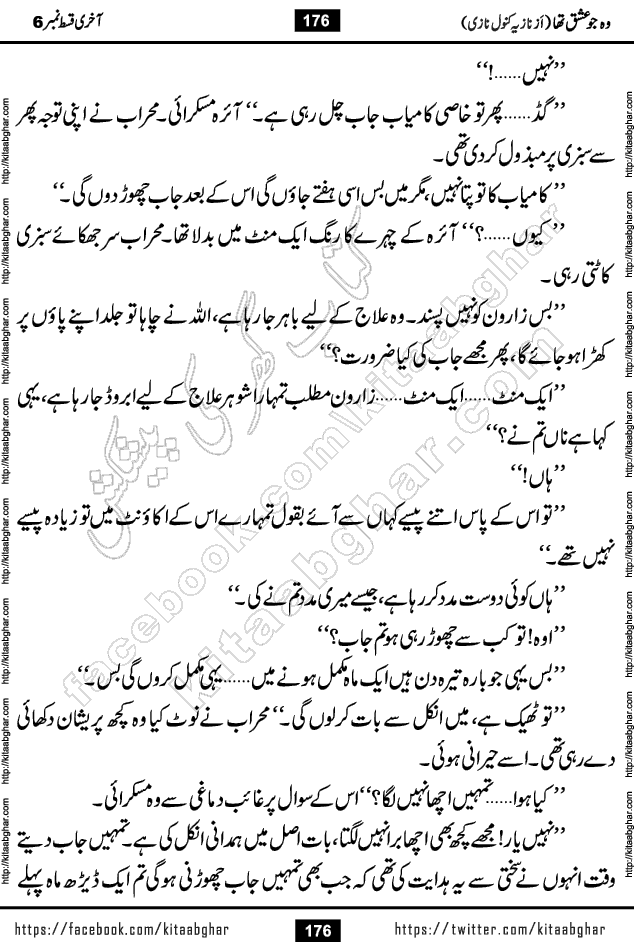 وہ جو عشق تھا (از نازیہ کنول نازی)
176
آخری قسط نمبر 6
’’نہیں......!‘‘
’’گڈ......پھر تو خاصی کامیاب جاب چل رہی ہے۔‘‘ آئزہ مسکرائی۔ محراب نے اپنی توجہ پھر
سے سبزی پر مبذول کردی تھی۔
’’کامیاب کا تو پتا نہیں، مگر میں بس اسی ہفتے جاؤں گی اس کے بعد جاب چھوڑ دوں گی۔‘‘
’’کیوں......؟‘‘ آئزہ کے چہرے کا رنگ ایک منٹ میں بدلا تھا۔ محراب سر جھکائے سبزی
کاٹتی رہی۔
’’بس زارون کو نہیں پسند۔ وہ علاج کے لیے باہر جا رہا ہے، اللہ نے چاہا تو جلد اپنے پاؤں پر
کھڑا ہو جائے گا، پھر مجھے جاب کی کیا ضرورت؟‘‘
’’ایک منٹ......ایک منٹ......زارون مطلب تمہارا شوہر علاج کے لیے ابروڈ جا رہا ہے، یہی
کہا ہے ناں تم نے؟‘‘
’’ہاں!‘‘
’’تو اس کے پاس اتنے پیسے کہاں سے آئے بقول تمہارے اس کے اکاؤنٹ میں تو زیادہ پیسے
نہیں تھے۔‘‘
’’ہاں کوئی دوست مدد کر رہا ہے، جیسے میری مدد تم نے کی۔‘‘
’’اوہ! تو کب سے چھوڑ رہی ہو تم جاب؟‘‘
’’بس یہی جو بارہ تیرہ دن ہیں ایک ماہ مکمل ہونے میں......یہی مکمل کروں گی بس۔‘‘
’’تو ٹھیک ہے، میں انکل سے بات کرلوں گی۔‘‘ محراب نے نوٹ کیا وہ کچھ پریشان دکھائی
دے رہی تھی۔ اسے حیرانی ہوئی۔
’’کیا ہوا......تمہیں اچھا نہیں لگا؟‘‘ اس کے سوال پر غائب دماغی سے وہ مسکرائی۔
’’نہیں یار! مجھے کچھ بھی اچھا برا نہیں لگتا، بات اصل میں ہمدانی انکل کی ہے۔ تمہیں جاب دیتے
وقت انہوں نے سختی سے یہ ہدایت کی تھی کہ جب بھی تمہیں جاب چھوڑنی ہوگی تم ایک ڈیڑھ ماہ پہلے
کتاب گھر کی پیشکش
facebook.com/kitaabghar
kitaabghar.com
http://kitaabghar.com http://kitaabghar.com http://kitaabghar.com http://kitaabghar.com http://kitaabghar.com http://kitaabghar.com http://kitaabghar.com http://kitaabghar.com
http://kitaabghar.com http://kitaabghar.com http://kitaabghar.com http://kitaabghar.com http://kitaabghar.com http://kitaabghar.com http://kitaabghar.com http://kitaabghar.com
https://facebook.com/kitaabghar
176
https://twitter.com/kitaabghar